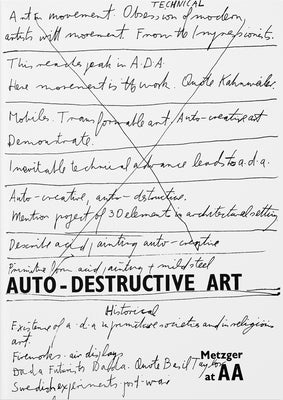 TECHNICAL
Art on movement. Obsession of modern
artists with movement. From the Impressionists.
This reaches peak in A.D.A.
Here movement is the work. Quote Kahnweiler.
Mobiles. Transformable art, Auto-creative art
Demonstrate.
Inevitable technical advance leads to a.d.a.
Auto-creative, auto-destructive.
Mention project of 3D element in architectural setting
Describe acid painting auto-creative
Primitive form acid painting + mild steel
AUTO-DESTRUCTIVE ART
Historical
Existence of a.d.a in primitive societies and in religious
art.
Fireworks. air displays
Dada Futurists Dalla. Quote Basil Taylor
Swedish experiments post-war
Metzger
at AA